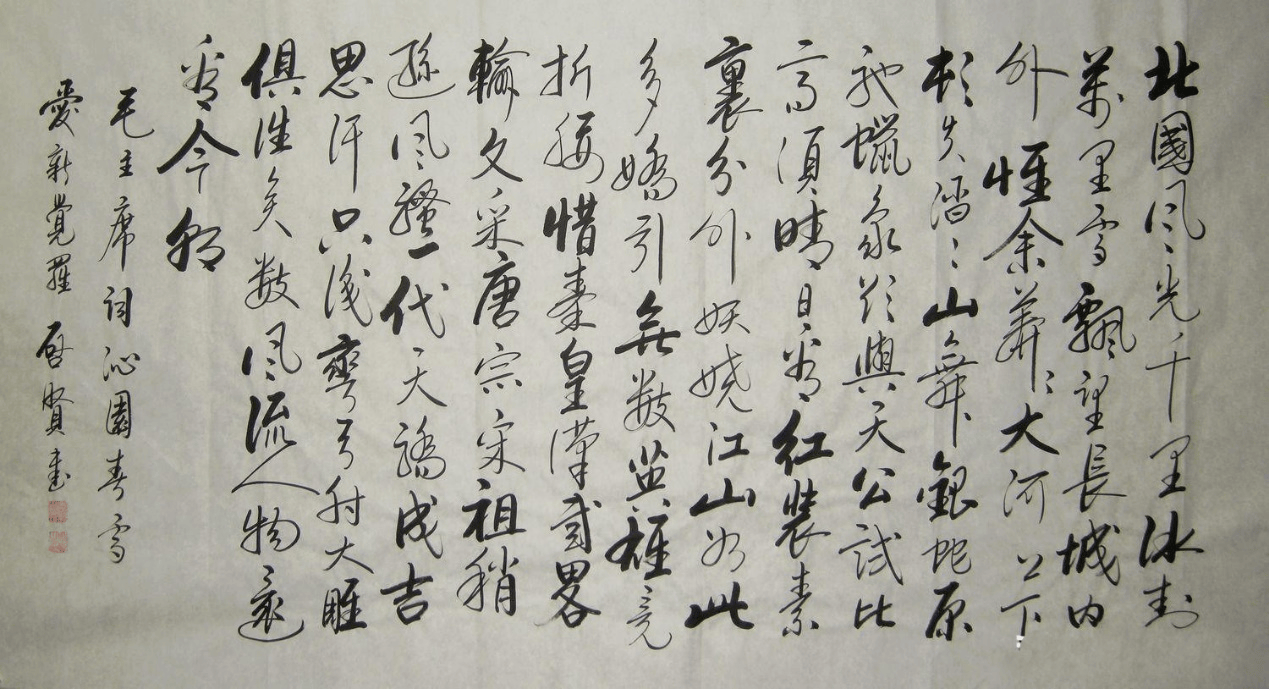 北國风光千里冰封
萬里雪飄望長城内
外惟余莽〻大河上下
頓失滔〻山舞銀蛇原
馳蠟象欲與天公試比
高須晴日看红裝素
裹分外妖娆江山如此
多嬌引無數英雄竞
折腰惜秦皇漢武畧
輸文采唐宗宋祖稍
遜风騷一代天驕成吉
思汗只识彎弓射大雕
俱往矣數风流人物還
看今朝
毛主席词沁園春雪
愛新覺羅啓賢書